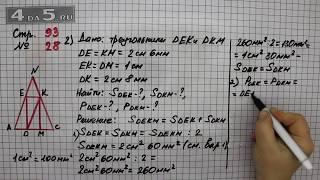 4da5.ru
Стр. 93
№ 28
N
E K
A D M C
1см²=100мм²
2) Дано: треугольники DEK и DKM
DE=KM=2см 6мм
EK=DM=1см
DK=2см 8мм
Найти: S DEK-?, S DKM-?,
P DEK-?, P DKM-?
Решение: S DEKM = S DEK + S DKM
1) S DEK = S DKM = S DEKM : 2
S DEKM = 2см² 60мм² (см. вар 1)
2см² 60мм² : 2 =
2см² 60мм² = 260мм²
260мм² : 2 = 130мм² =
= 1см² 30мм² -
S DEK = S DKM
2) P DEK = P DKM =
= DE